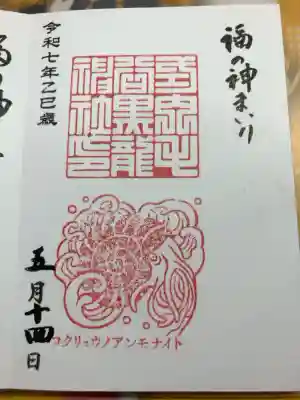 福の神まいり
毛
谷黒龍
神社印
令和七年乙巳歳
コクリュウノアンモナイト
五月十四日